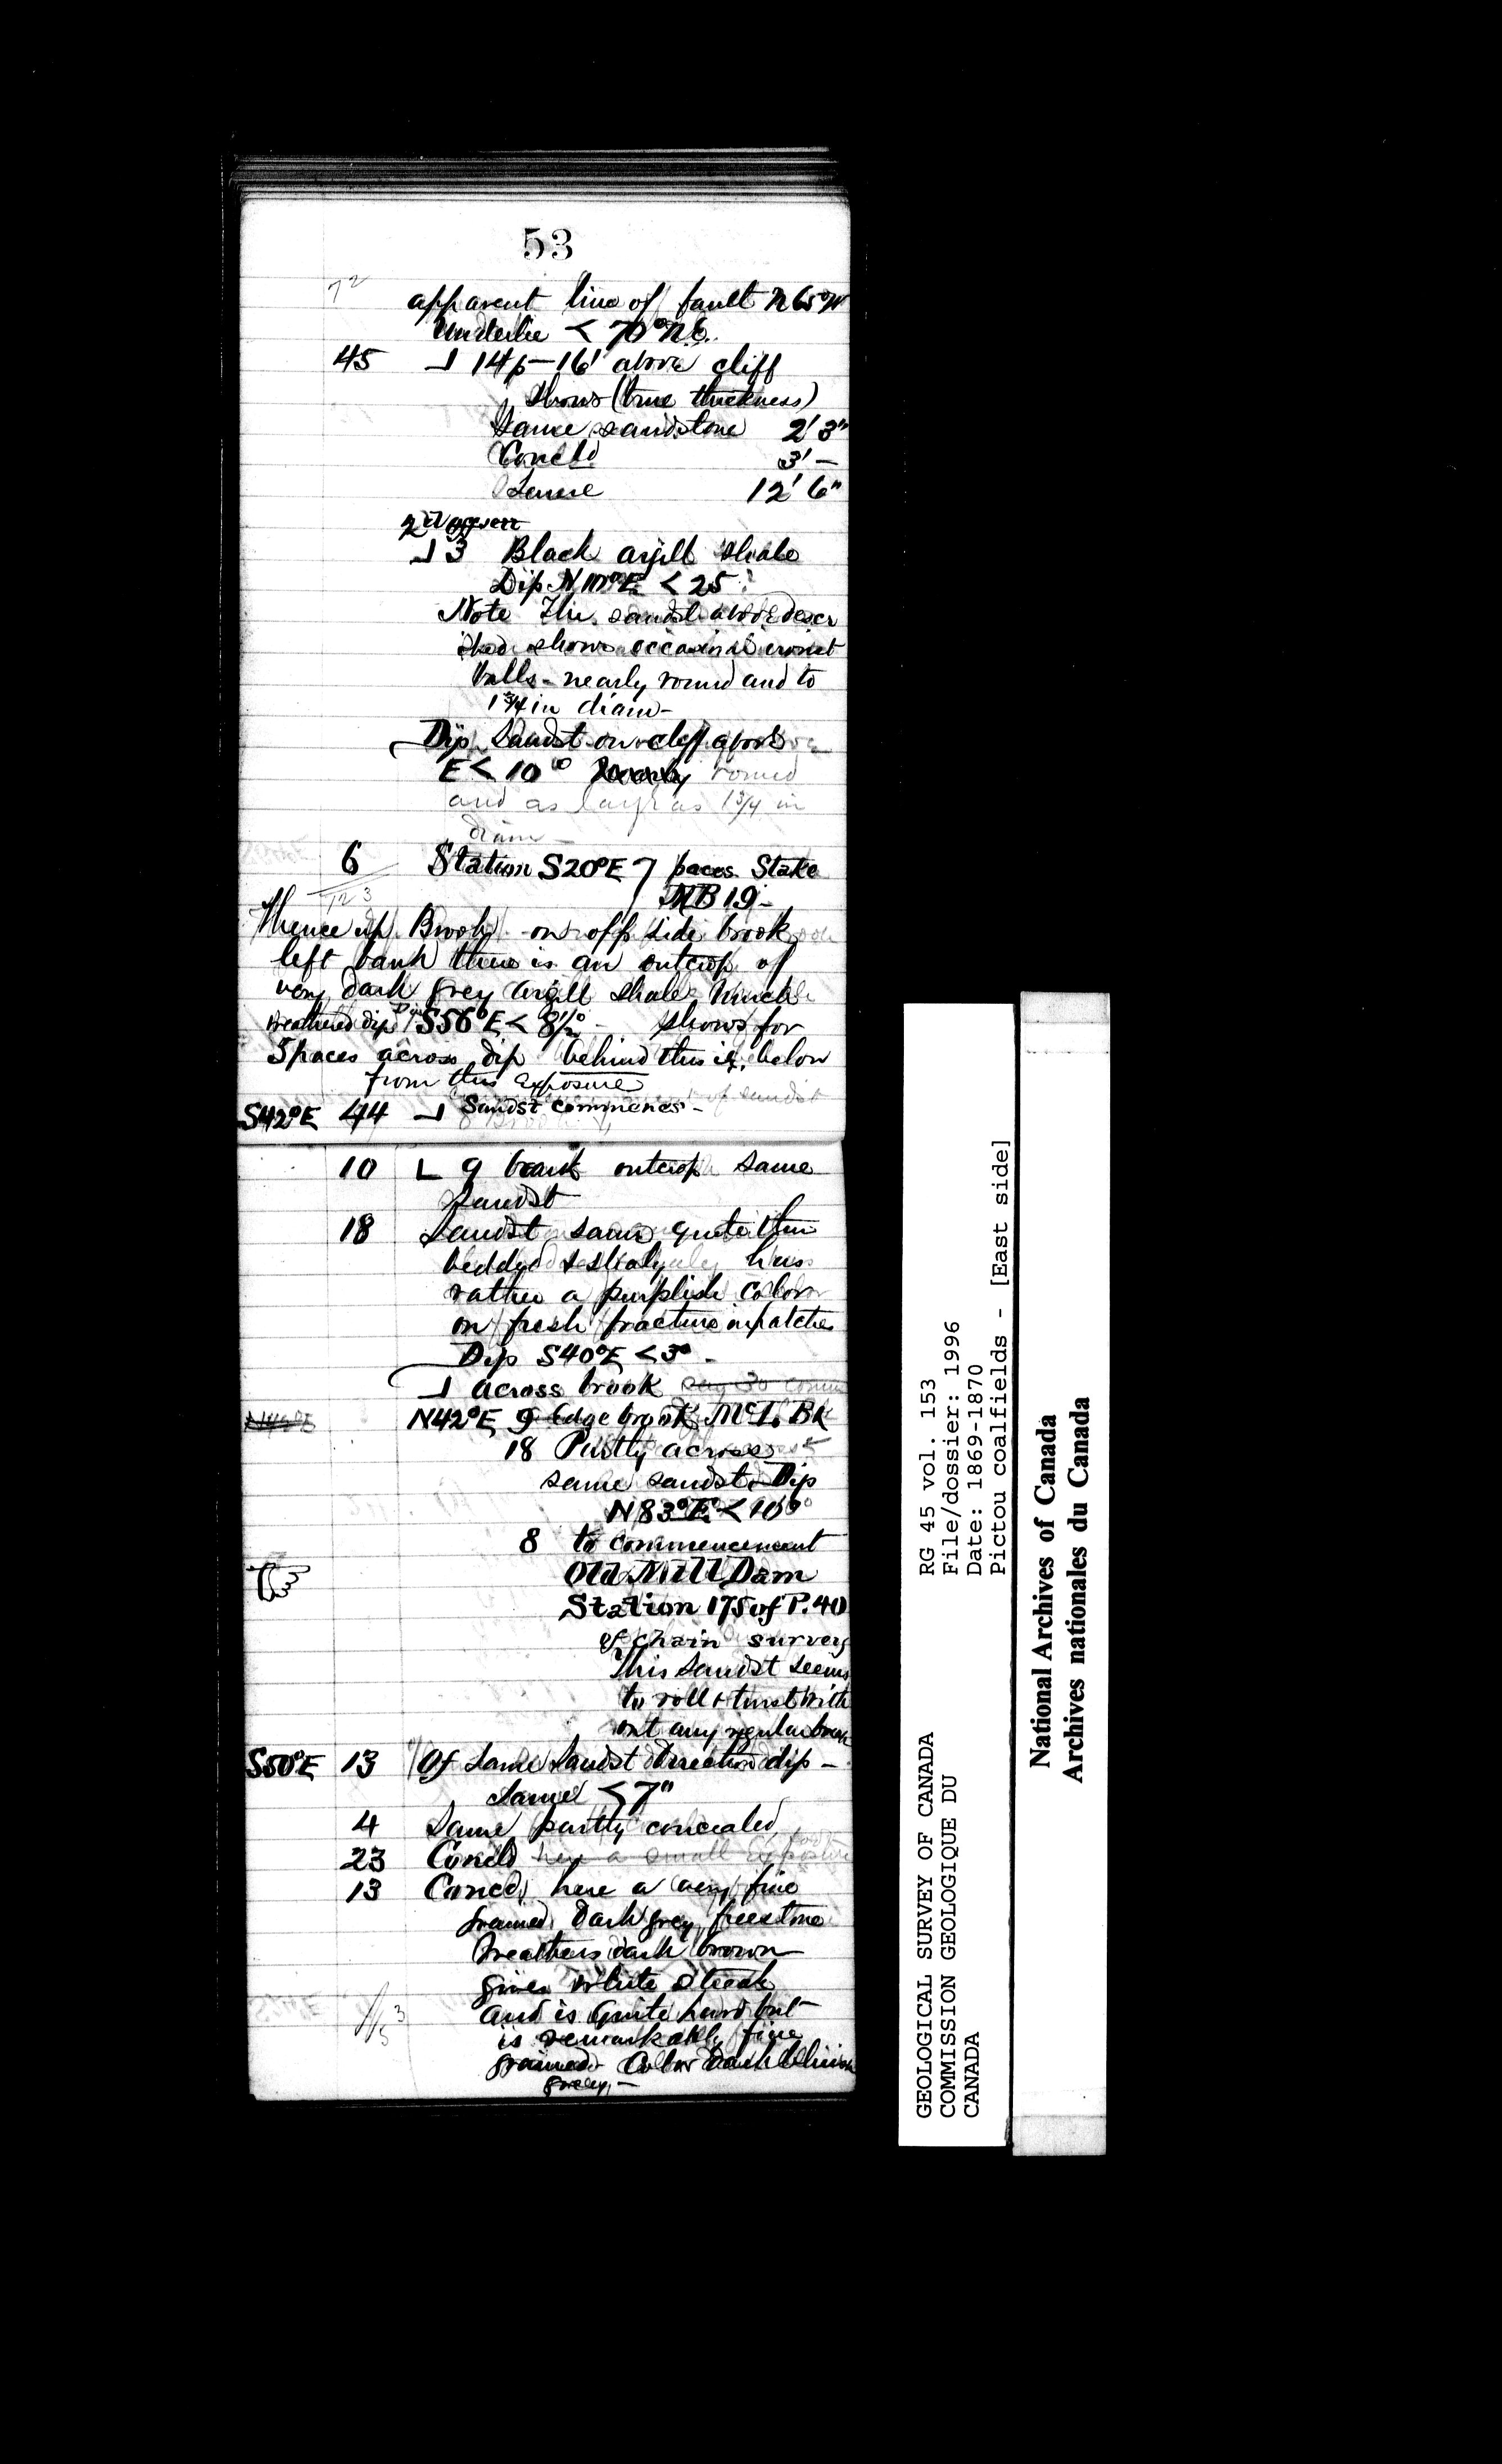 53
72
apparent line of fault N65°W
Underlie < 70° N.E.
45 ⅃ 14p—16' above cliff
Shows (true thickness)
Same sandstone 2' 3"
Concld 3' —
Same 12' 6"
2nd
⅃ 3 Black argill shale
Dip N 10°E < 25
Note The sandst above descr
ibed shows occasional
balls - nearly round and to
1 3/4 in diam -
Dip Sandst on cliff above
E < 10° nearly round
and as large as 1 3/4 in
diam -
6 Station S20°E 7 paces Stake
MB 19 -
123
Thence up Brook on off side brook
left bank there is an outcrop of
very dark grey argill shale much
weathered dip S56°E < 8½° - shows for
5 paces across dip behind this is, below
from this exposure
S42°E 44 ⅃ Sandst commences -
10 L 9 bank outcrop same
Sandst
18 Sandst same quite thin
bedded & shaly has
rather a purplish color
on fresh fracture in patches
Dip S40°E < 3° -
⅃ across brook say 30
N42°E 9 edge brook McL. Bk
18 Partly across
same sandst Dip
N83°E < 10°
8 to commencement
Old Mill Dam
Station 175 of P. 40
of chain survey
This Sandst seems
to roll & twist with
out any regular break
S50°E 13 Of same Sandst direction dip -
Same < 7"
4 Same partly concealed
23 Concld here a small exposure
13 Concd, here a very fine
grained dark grey freestone
Weathers dark brown
gives white streak
and is quite hard but
is remarkably fine
grained - Color dark bluish
grey, -
GEOLOGICAL SURVEY OF CANADA
COMMISSION GEOLOGIQUE DU
CANADA
RG 45 vol. 153
File/dossier: 1996
Date: 1869-1870
Pictou coalfields - [East side]
National Archives of Canada
Archives nationales du Canada